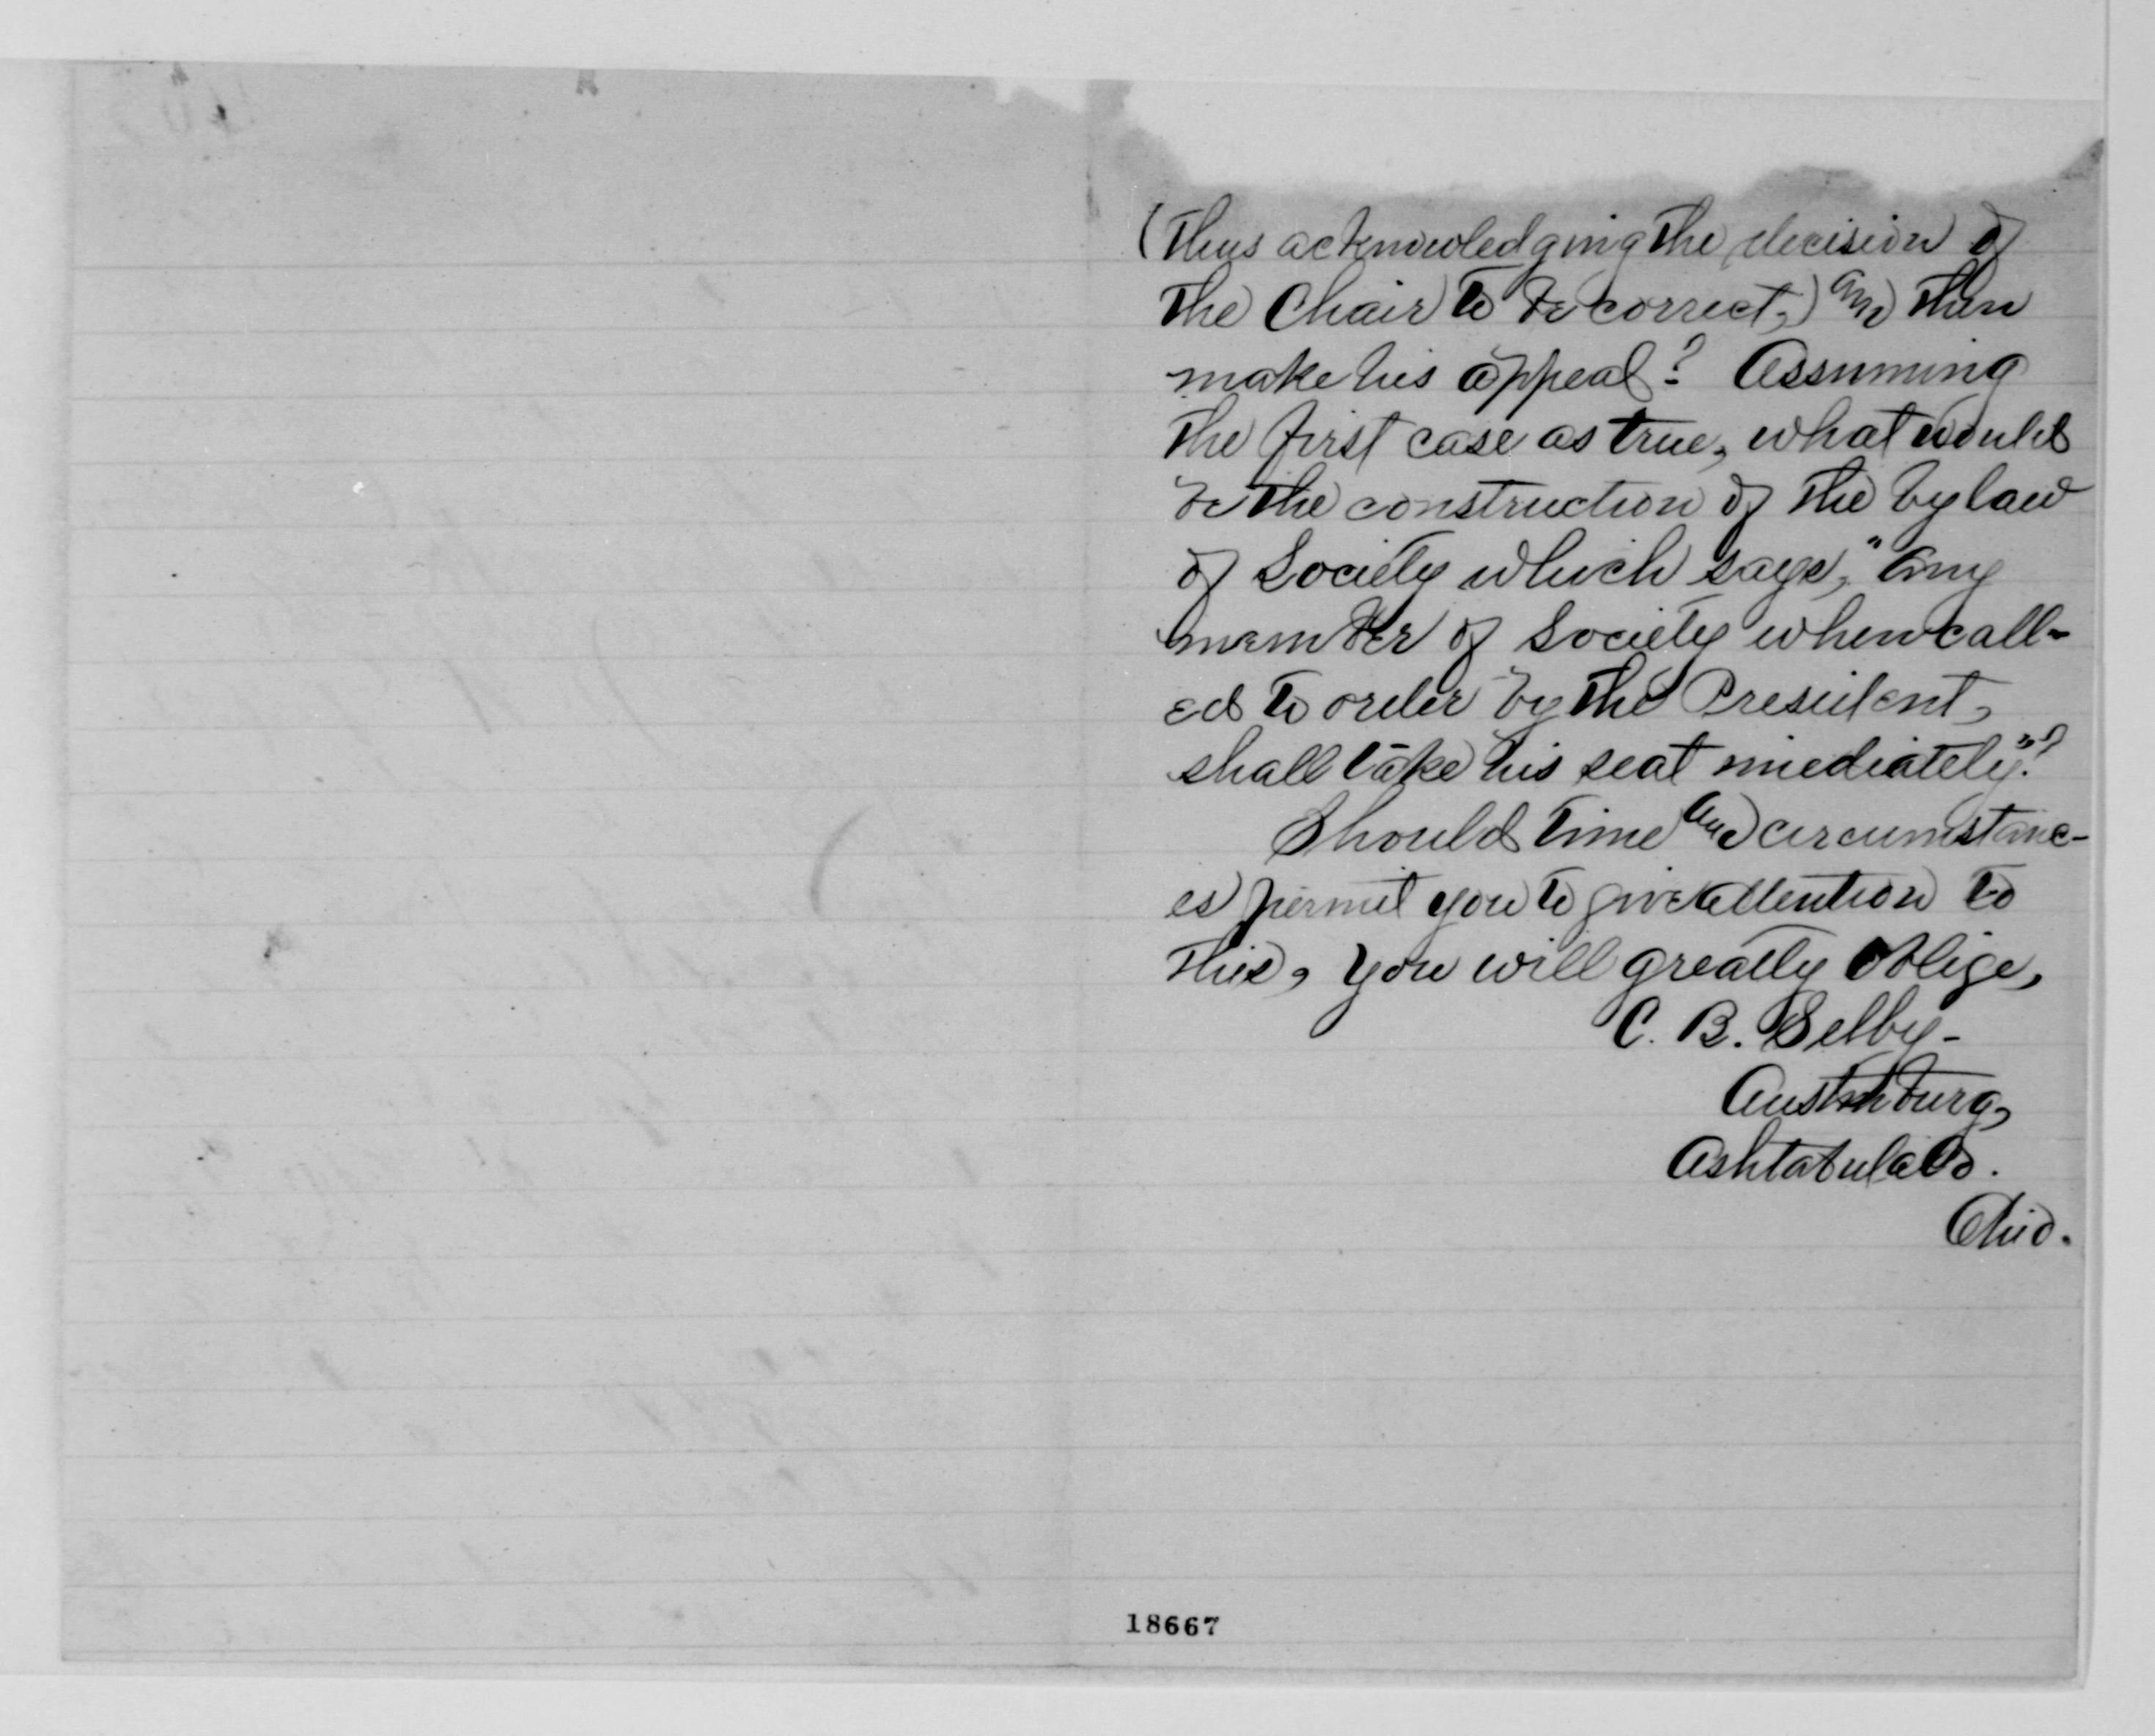 (Thus acknowledging the decision of
the Chair to be correct,) and then
make his appeal? Assuming
the first case as true, what would
be the construction of the by law
of Society which says, "Any
member of Society when call-
ed to order by the President,
shall take his seat imediately."?
Should time and circumstanc-
es permit you to give attention to
this, you will greatly oblige,
C. B. Selby-
Austinburg,
Ashtabula Co.
Ohio.
18667